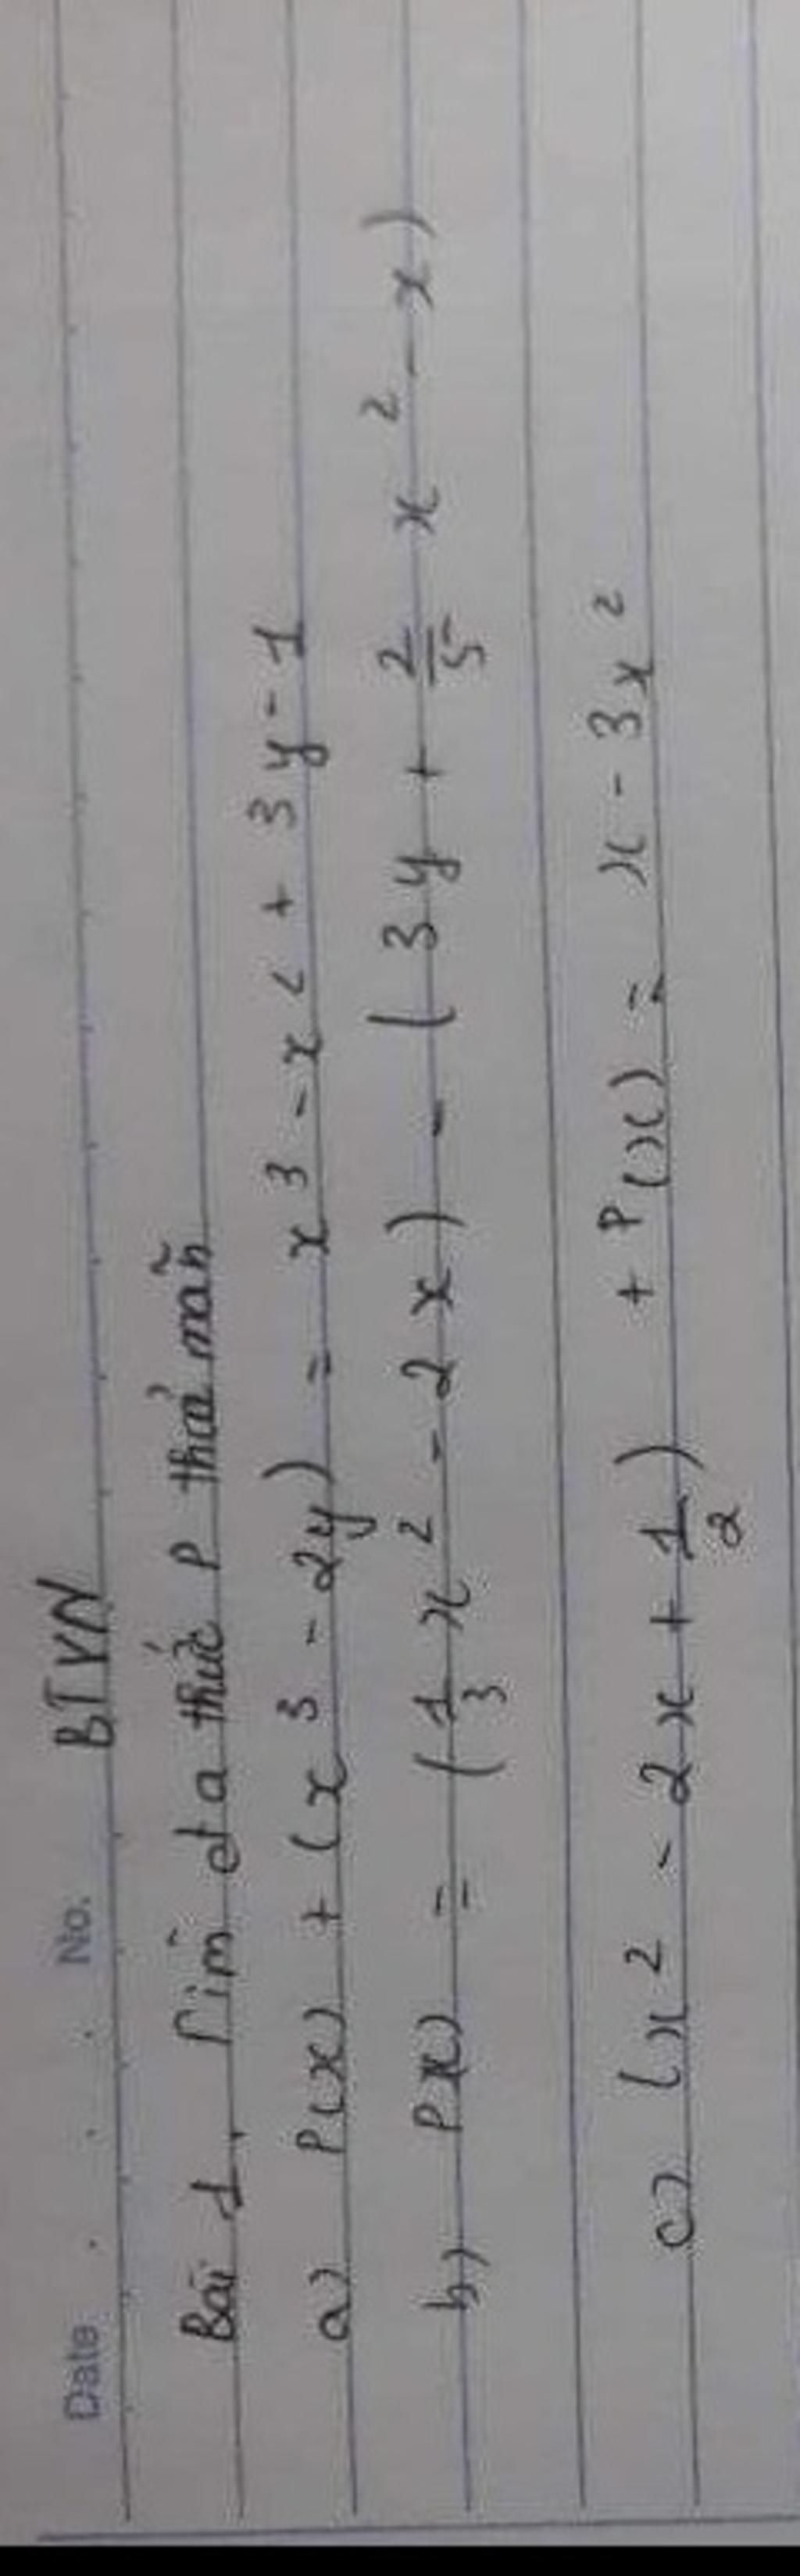 Date . . . No. BTVN
Bài 1. Tìm đa thức P thoả mãn
a) P(x) + (x³ - 2y) = x³ - x² + 3y - 1
b) P(x) = (1/3 x² - 2x) - (3y + 2/5 x² - x)
c) (x² - 2x + 1/2) + P(x) = x - 3x²